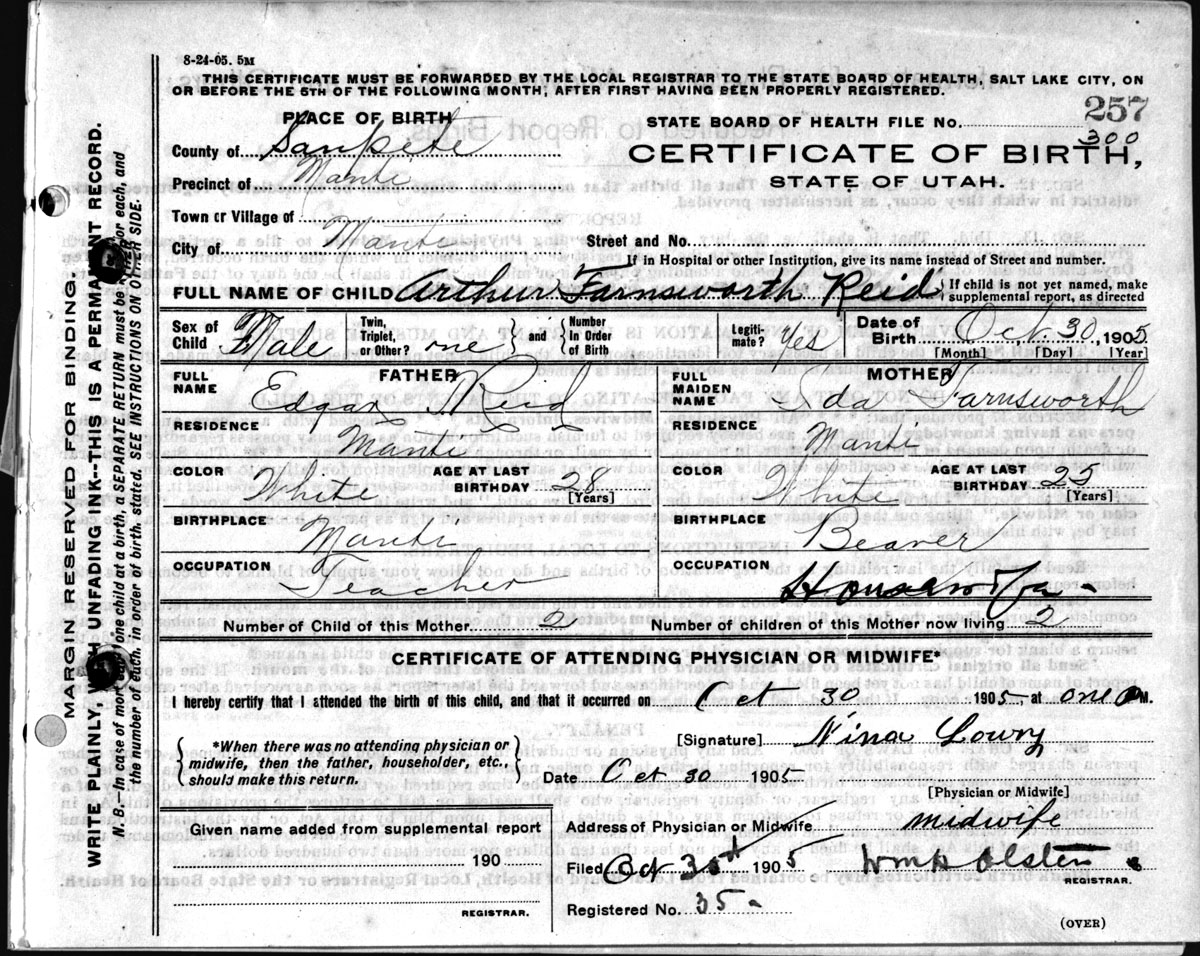 8-24-05. 5M
THIS CERTIFICATE MUST BE FORWARDED BY THE LOCAL REGISTRAR TO THE STATE BOARD OF HEALTH, SALT LAKE CITY, ON
OR BEFORE THE 5TH OF THE FOLLOWING MONTH, AFTER FIRST HAVING BEEN PROPERLY REGISTERED.
PLACE OF BIRTH
STATE BOARD OF HEALTH FILE NO. 257
300
County of Sanpete
CERTIFICATE OF BIRTH,
Precinct of Manti
STATE OF UTAH.
Town or Village of
City of Manti
Street and No.
If in Hospital or other Institution, give its name instead of Street and number.
FULL NAME OF CHILD Arthur Farnsworth Reid { If child is not yet named, make supplemental report, as directed
Sex of Child Male Twin, Triplet, or Other? one } and { Number in Order of Birth Legitimate? Yes Date of Birth Oct. 30, 1905
[Month] [Day] [Year]
FATHER
FULL NAME Edgar T. Reid
MOTHER
FULL MAIDEN NAME Ida Farnsworth
RESIDENCE Manti
RESIDENCE Manti
COLOR White AGE AT LAST BIRTHDAY 28 [Years]
COLOR White AGE AT LAST BIRTHDAY 25 [Years]
BIRTHPLACE Manti
BIRTHPLACE Beaver
OCCUPATION Teacher
OCCUPATION Housewife
Number of Child of this Mother 2 Number of children of this Mother now living 2
CERTIFICATE OF ATTENDING PHYSICIAN OR MIDWIFE*
I hereby certify that I attended the birth of this child, and that it occurred on Oct 30 1905, at one M.
[Signature] Nina Lowry
*When there was no attending physician or
midwife, then the father, householder, etc.,
should make this return.
Date Oct 30 1905
[Physician or Midwife]
Given name added from supplemental report
190
REGISTRAR.
Address of Physician or Midwife midwife
Filed Oct 30st 1905 Wm A Olsten
REGISTRAR.
Registered No. 35
(OVER)
MARGIN RESERVED FOR BINDING.
WRITE PLAINLY, WITH UNFADING INK--THIS IS A PERMANENT RECORD.
N. B.--In case of more than one child at a birth, a SEPARATE RETURN must be made for each, and
the number of each, in order of birth, stated. SEE INSTRUCTIONS ON OTHER SIDE.